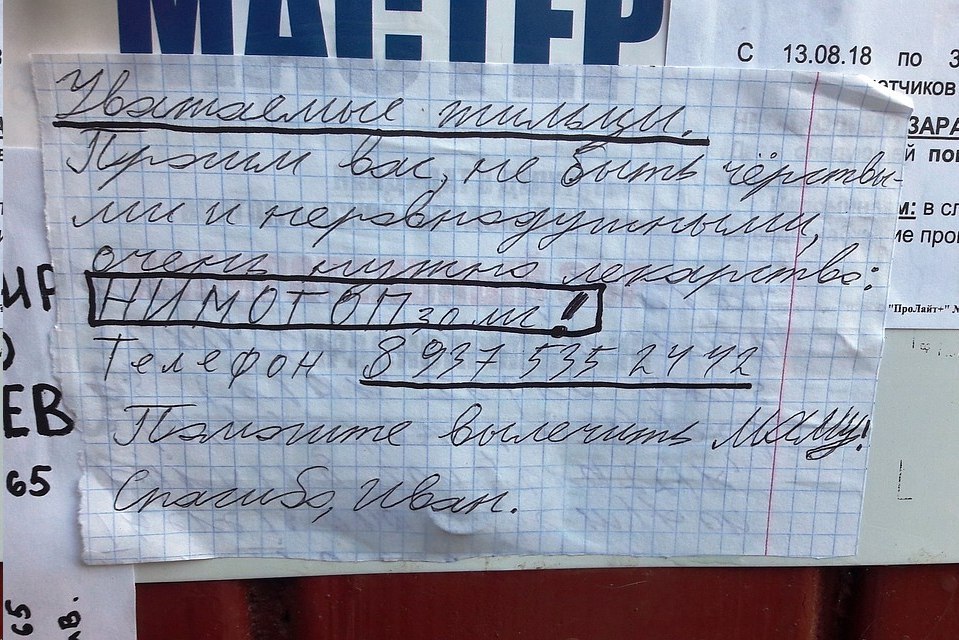 МАСТЕР
С 13.08.18 по 3
етчиков
ЗАРА
й
м: в сл
ие про
"ПроЛайт+" №
Уважаемые жильцы.
Просим вас, не быть чёрствы-
ми и неравнодушными,
очень нужно лекарство:
НИМОТОП 30 мг!
Телефон 8 937 535 2442
Поможите вылечить Маму!
Спасибо, Иван.
ЕВ
65
65